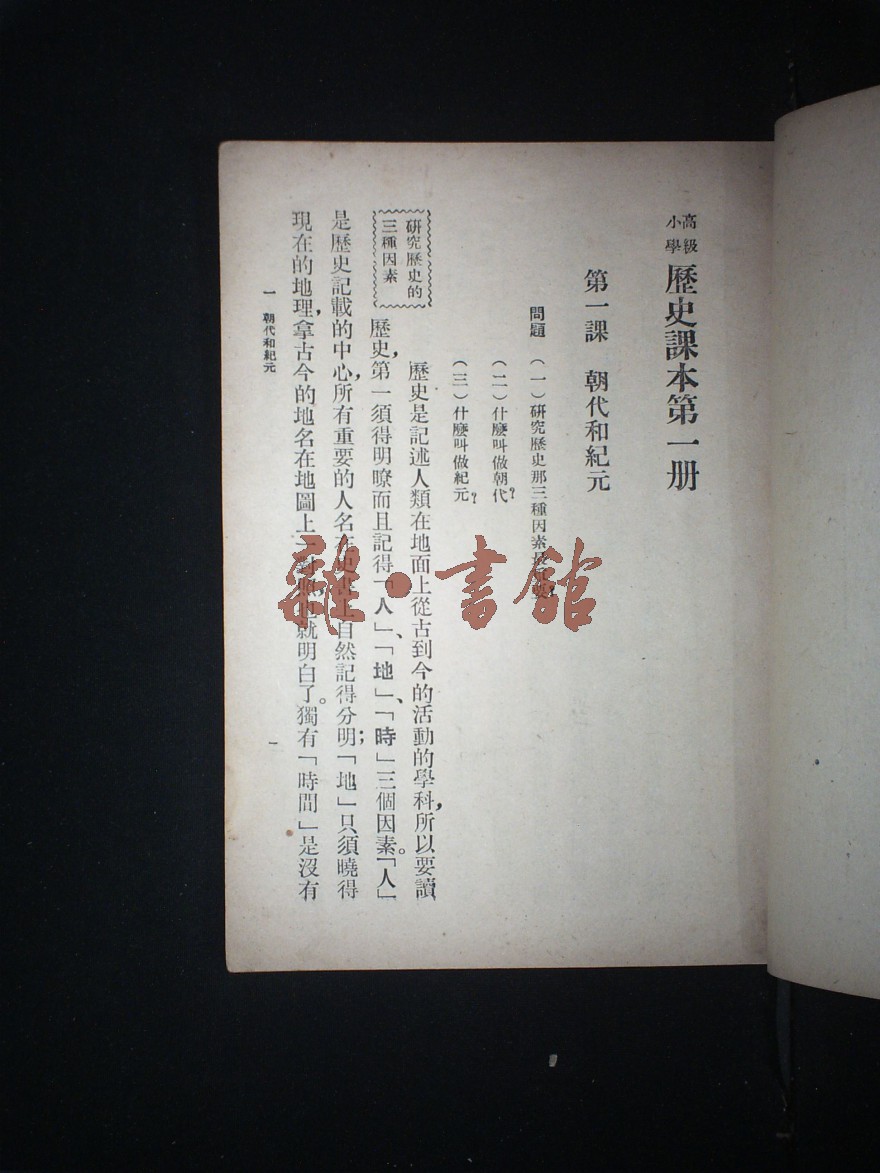 高級小學 歷史課本第一册
第一課 朝代和紀元
問題 (一)硏究歷史那三種因素最重要?
(二)什麼叫做朝代?
(三)什麼叫做紀元?
硏究歷史的
三種因素
歷史是記述人類在地面上從古到今的活動的學科,所以要讀
歷史,第一須得明瞭而且記得「人」、「地」、「時」三個因素。「人」
是歷史記載的中心,所有重要的人名在史書上自然記得分明;「地」只須曉得
現在的地理,拿古今的地名在地圖上一對照,也就明白了。獨有「時間」是沒有
一 朝代和紀元
一
雜·書館